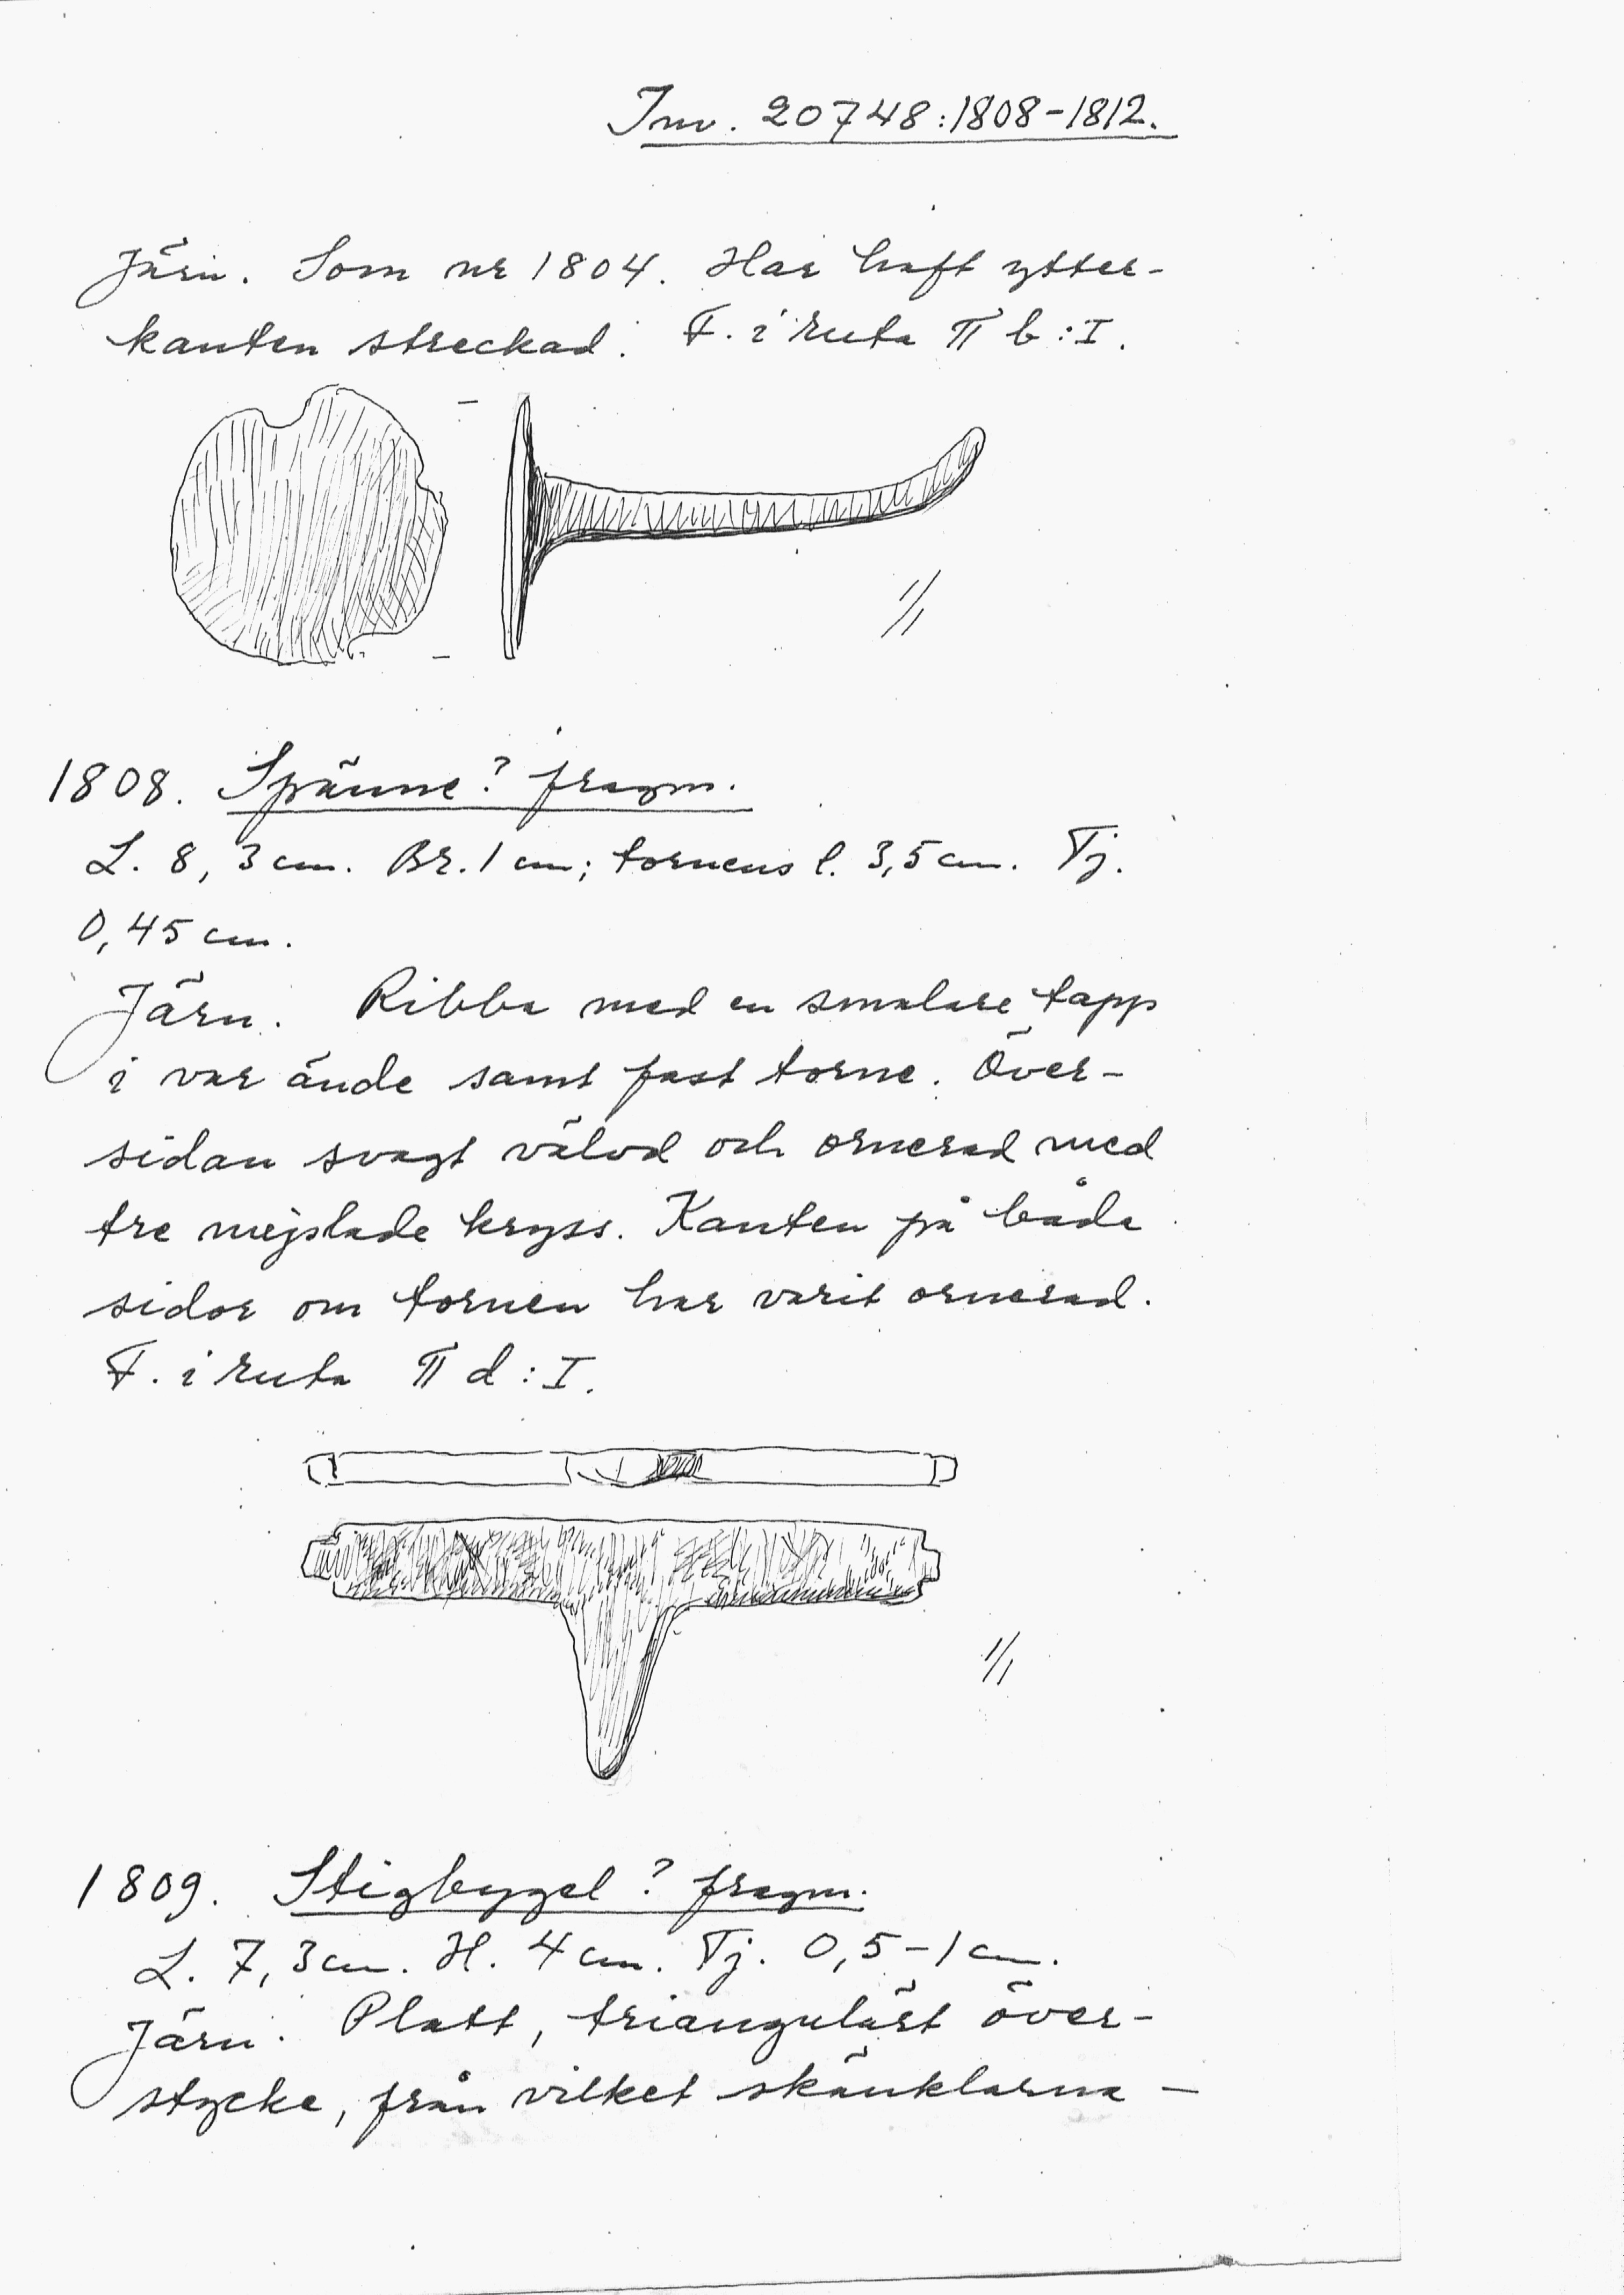 Inv. 20748:1808-1812.
Järn. Som nr 1804. Har haft ytter-
kanten streckad. F. i ruta II b:I.
1/1
1808. Spänne? fragm.
L. 8,3 cm. Br. 1 cm; tornens l. 3,5 cm. Tj.
0,45 cm.
Järn. Ribba med en smalare tapp
i var ände samt fast torne. Över-
sidan svagt välvd och ornerad med
tre mejslade kryss. Kanten på båda
sidor om tornen har varit ornerad.
F. i ruta II d:I.
1/1
1809. Stigbygel? fragm.
L. 7,3 cm. H. 4 cm. Tj. 0,5-1 cm.
Järn. Platt, triangulärt över-
stycke, från vilket skänklarna -